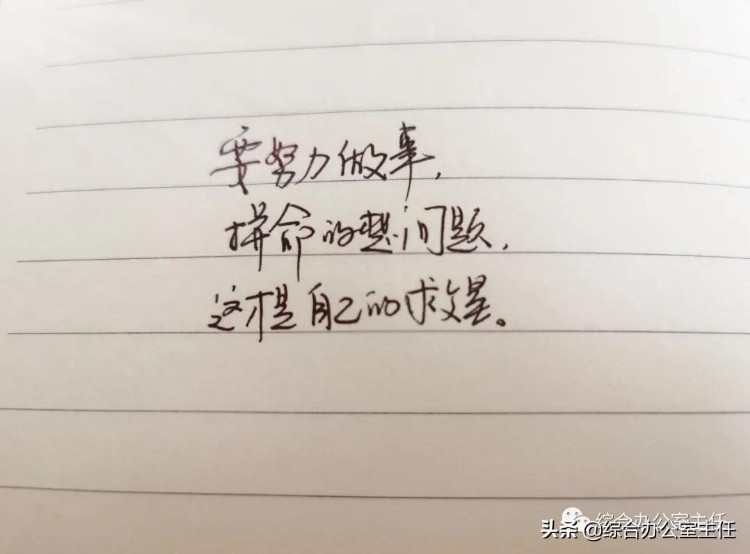 要努力做事,
拼命的想问题,
这才是自己的救星。
综合办公室主任
头条 @综合办公室主任